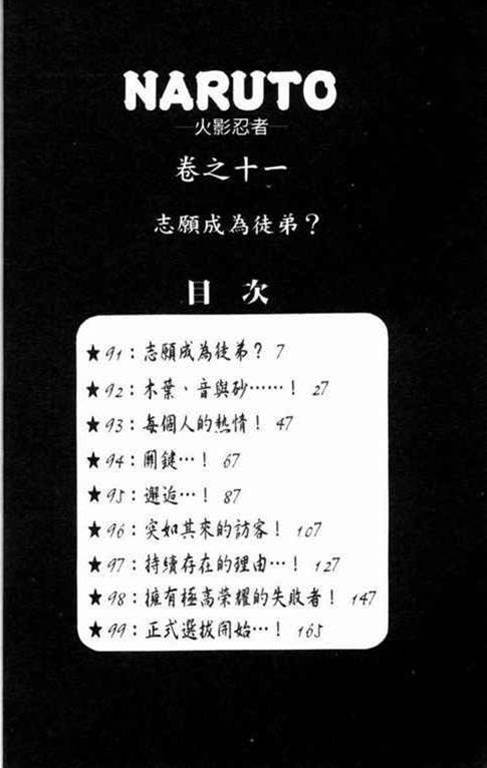 NARUTO
火影忍者
卷之十一
志願成為徒弟？
目 次
★91：志願成為徒弟？ 7
★92：木葉、音與砂……！ 27
★93：每個人的熱情！ 47
★94：關鍵…！ 67
★95：邂逅…！ 87
★96：突如其來的訪客！ 107
★97：持續存在的理由…！ 127
★98：擁有極高榮耀的失敗者！ 147
★99：正式選拔開始…！ 165